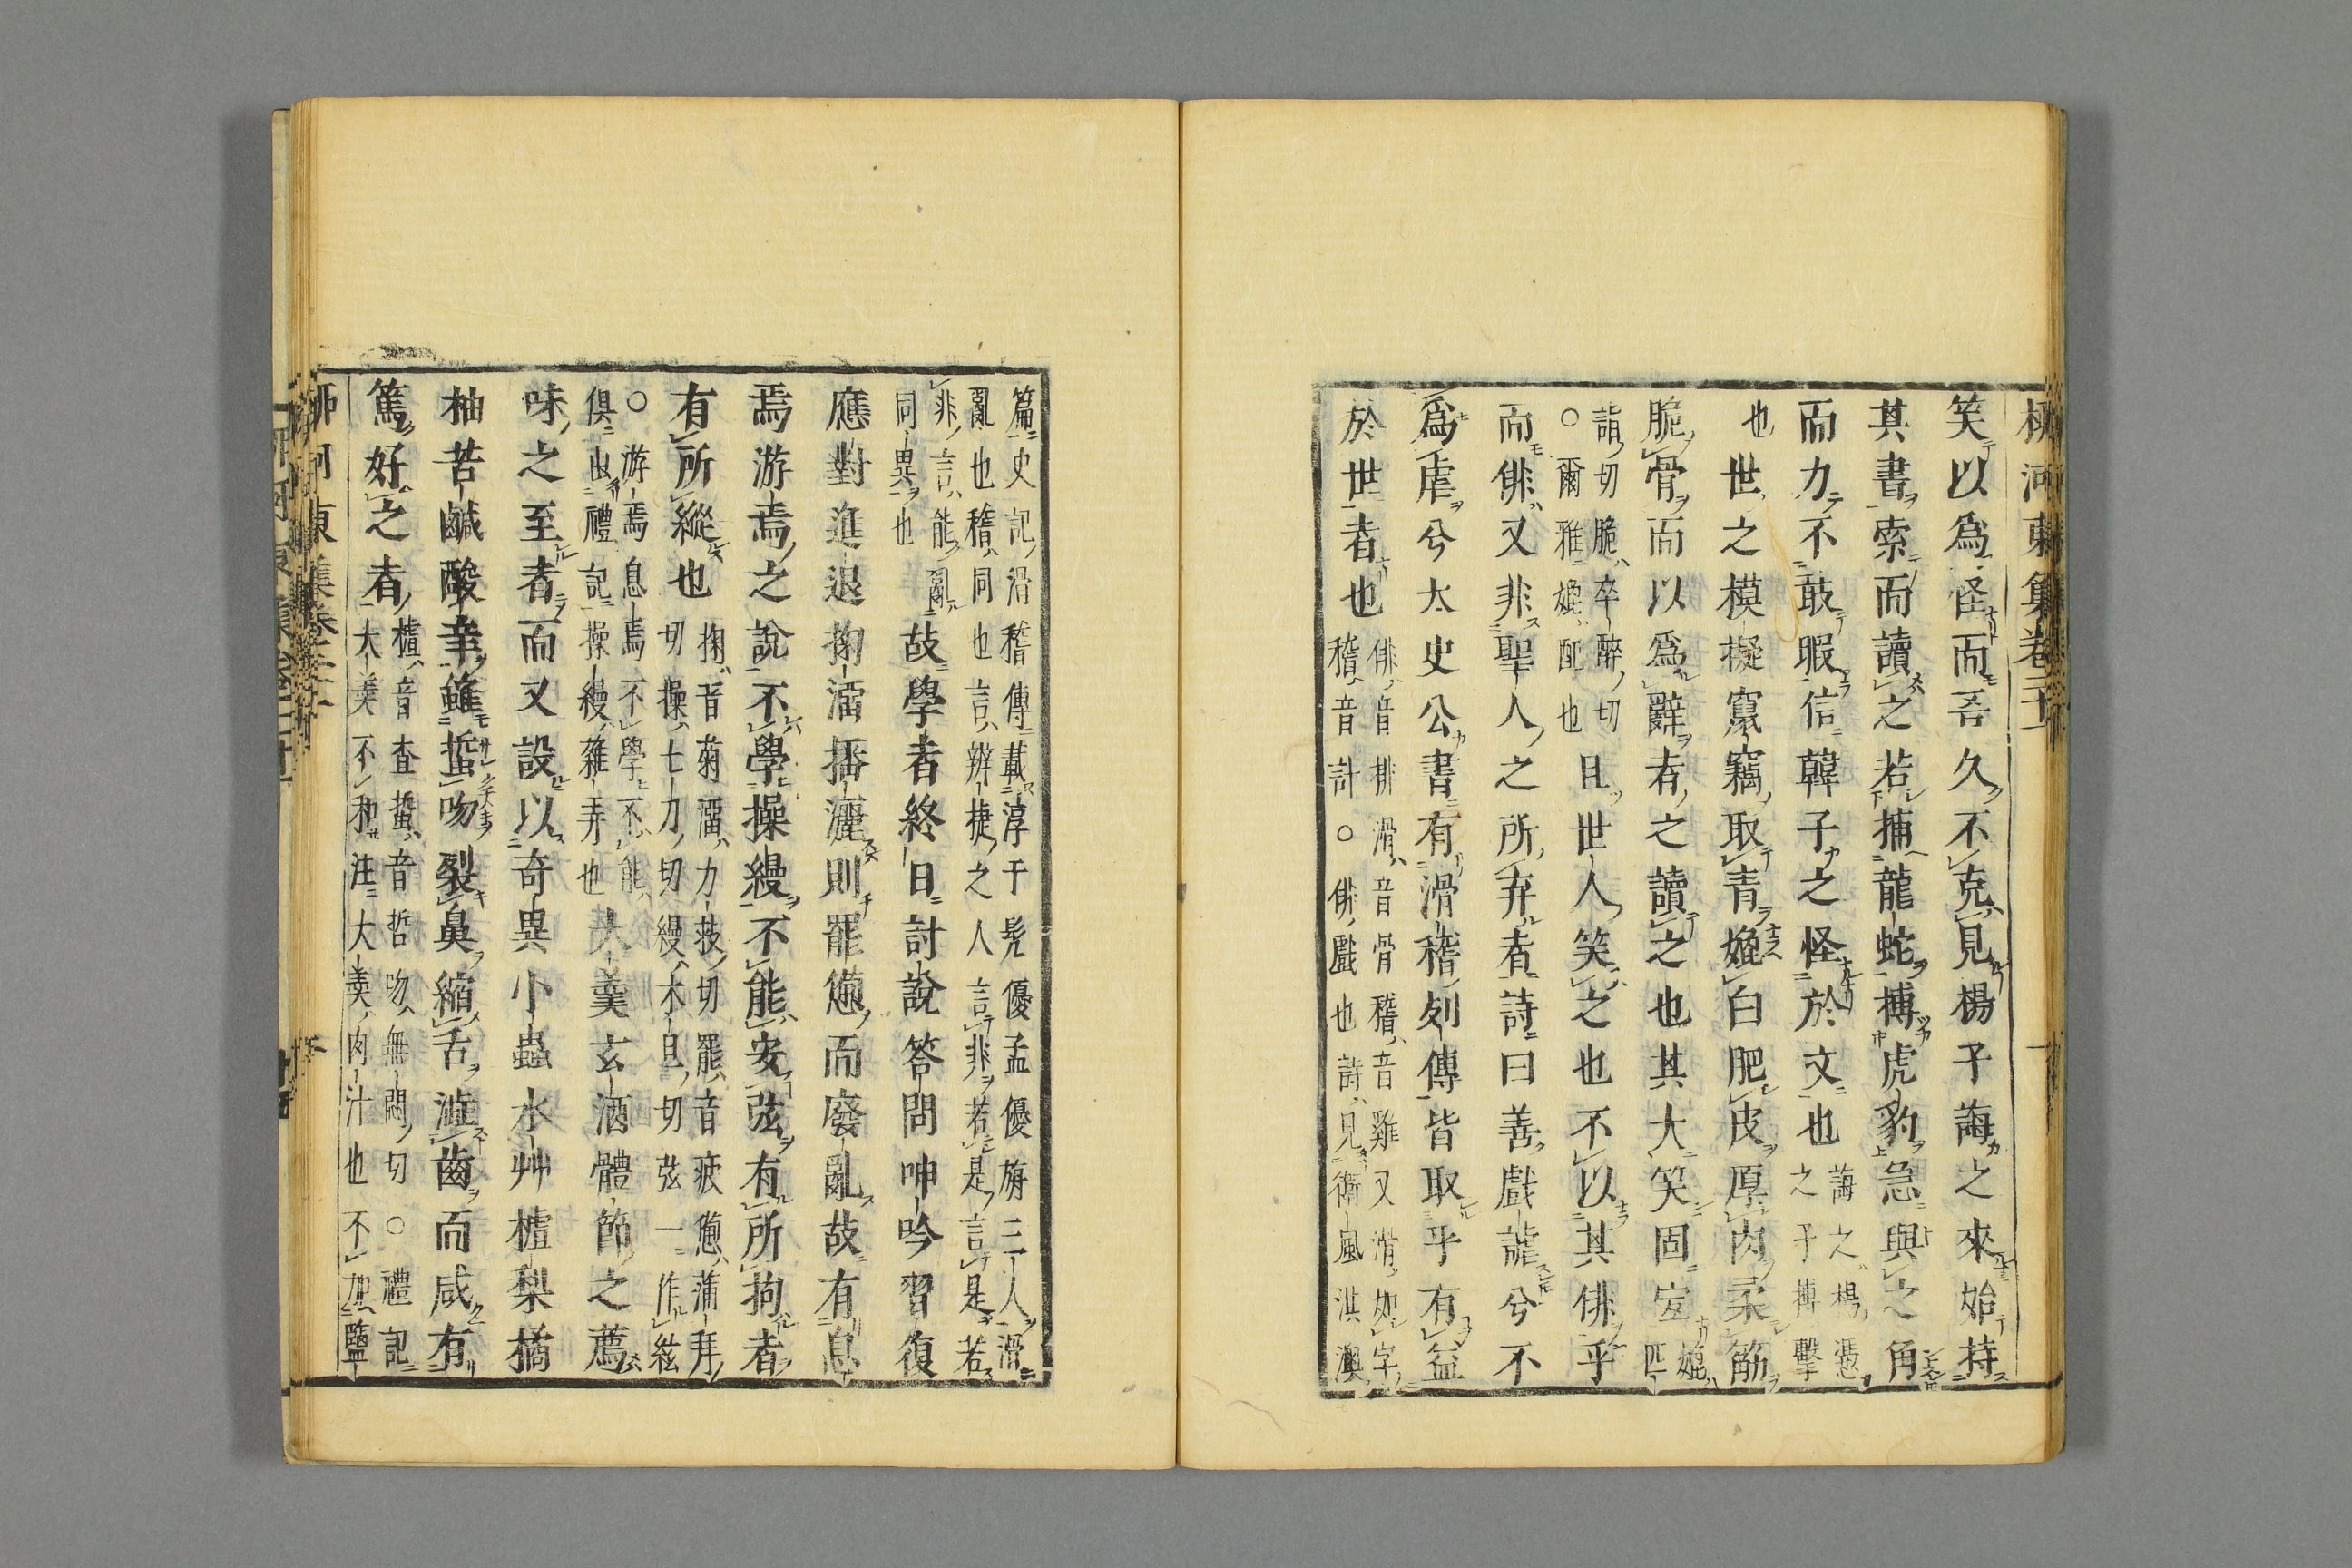 柳河東集卷二十一
笑以爲怪而吾久不克見楊子誨之來始持
其書索而讀之若捕龍蛇搏虎豹急與之角
而力不敢暇信韓子之怪於文也
誨之楊憑
之子搏擊
也
世之模擬竄竊取青媲白肥皮厚肉柔筋
脆骨而以爲辭者之讀之也其大笑固宜
媲
匹
詣切脆卒醉切
○爾雅媲配也
且世人笑之也不以其俳乎
而俳又非聖人之所弃者詩曰善戲謔兮不
爲虐兮太史公書有滑稽列傳皆取乎有益
於世者也
俳音排滑音骨稽音雞又滑如字
稽音計○俳戲也詩見衛風淇澳
篇史記滑稽傳載淳于髡優孟優旃三人滑
亂也稽同也言辨捷之人言非若是言是若
非言能亂
同異也
故學者終日討說答問呻吟習復
應對進退掬溜播灑則罷憊而廢亂故有息
焉游焉之說不學操縵不能安弦有所拘者
有所縱也
掬音菊溜力救切罷音疲憊蒲拜
切操七刀切縵木旦切弦一作絃
○游焉息焉不學不能
俱出禮記操縵雜弄也
大羹玄酒體節之薦
味之至者而又設以奇異小蟲水艸樝梨橘
柚苦鹹酸辛雖蜇吻裂鼻縮舌澁齒而咸有
篤好之者
樝音査蜇音哲吻無悶切○禮記
大羹不和注大羹肉汁也不加鹽
柳河東集卷二十一